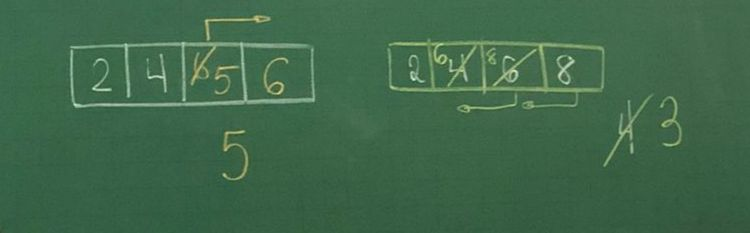 2 4 6 5 6
5
2 6 4 8 6 8
4 3